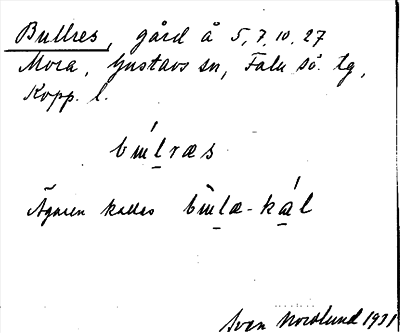 Bullres, gård å 5, 7, 10, 27
Mora, Gustavs sn, Falu sö. tg,
Kopp. l.
búl̲ræs
Ägaren kallas bùl̲æ-kál̲
Sven Nordlund 1931